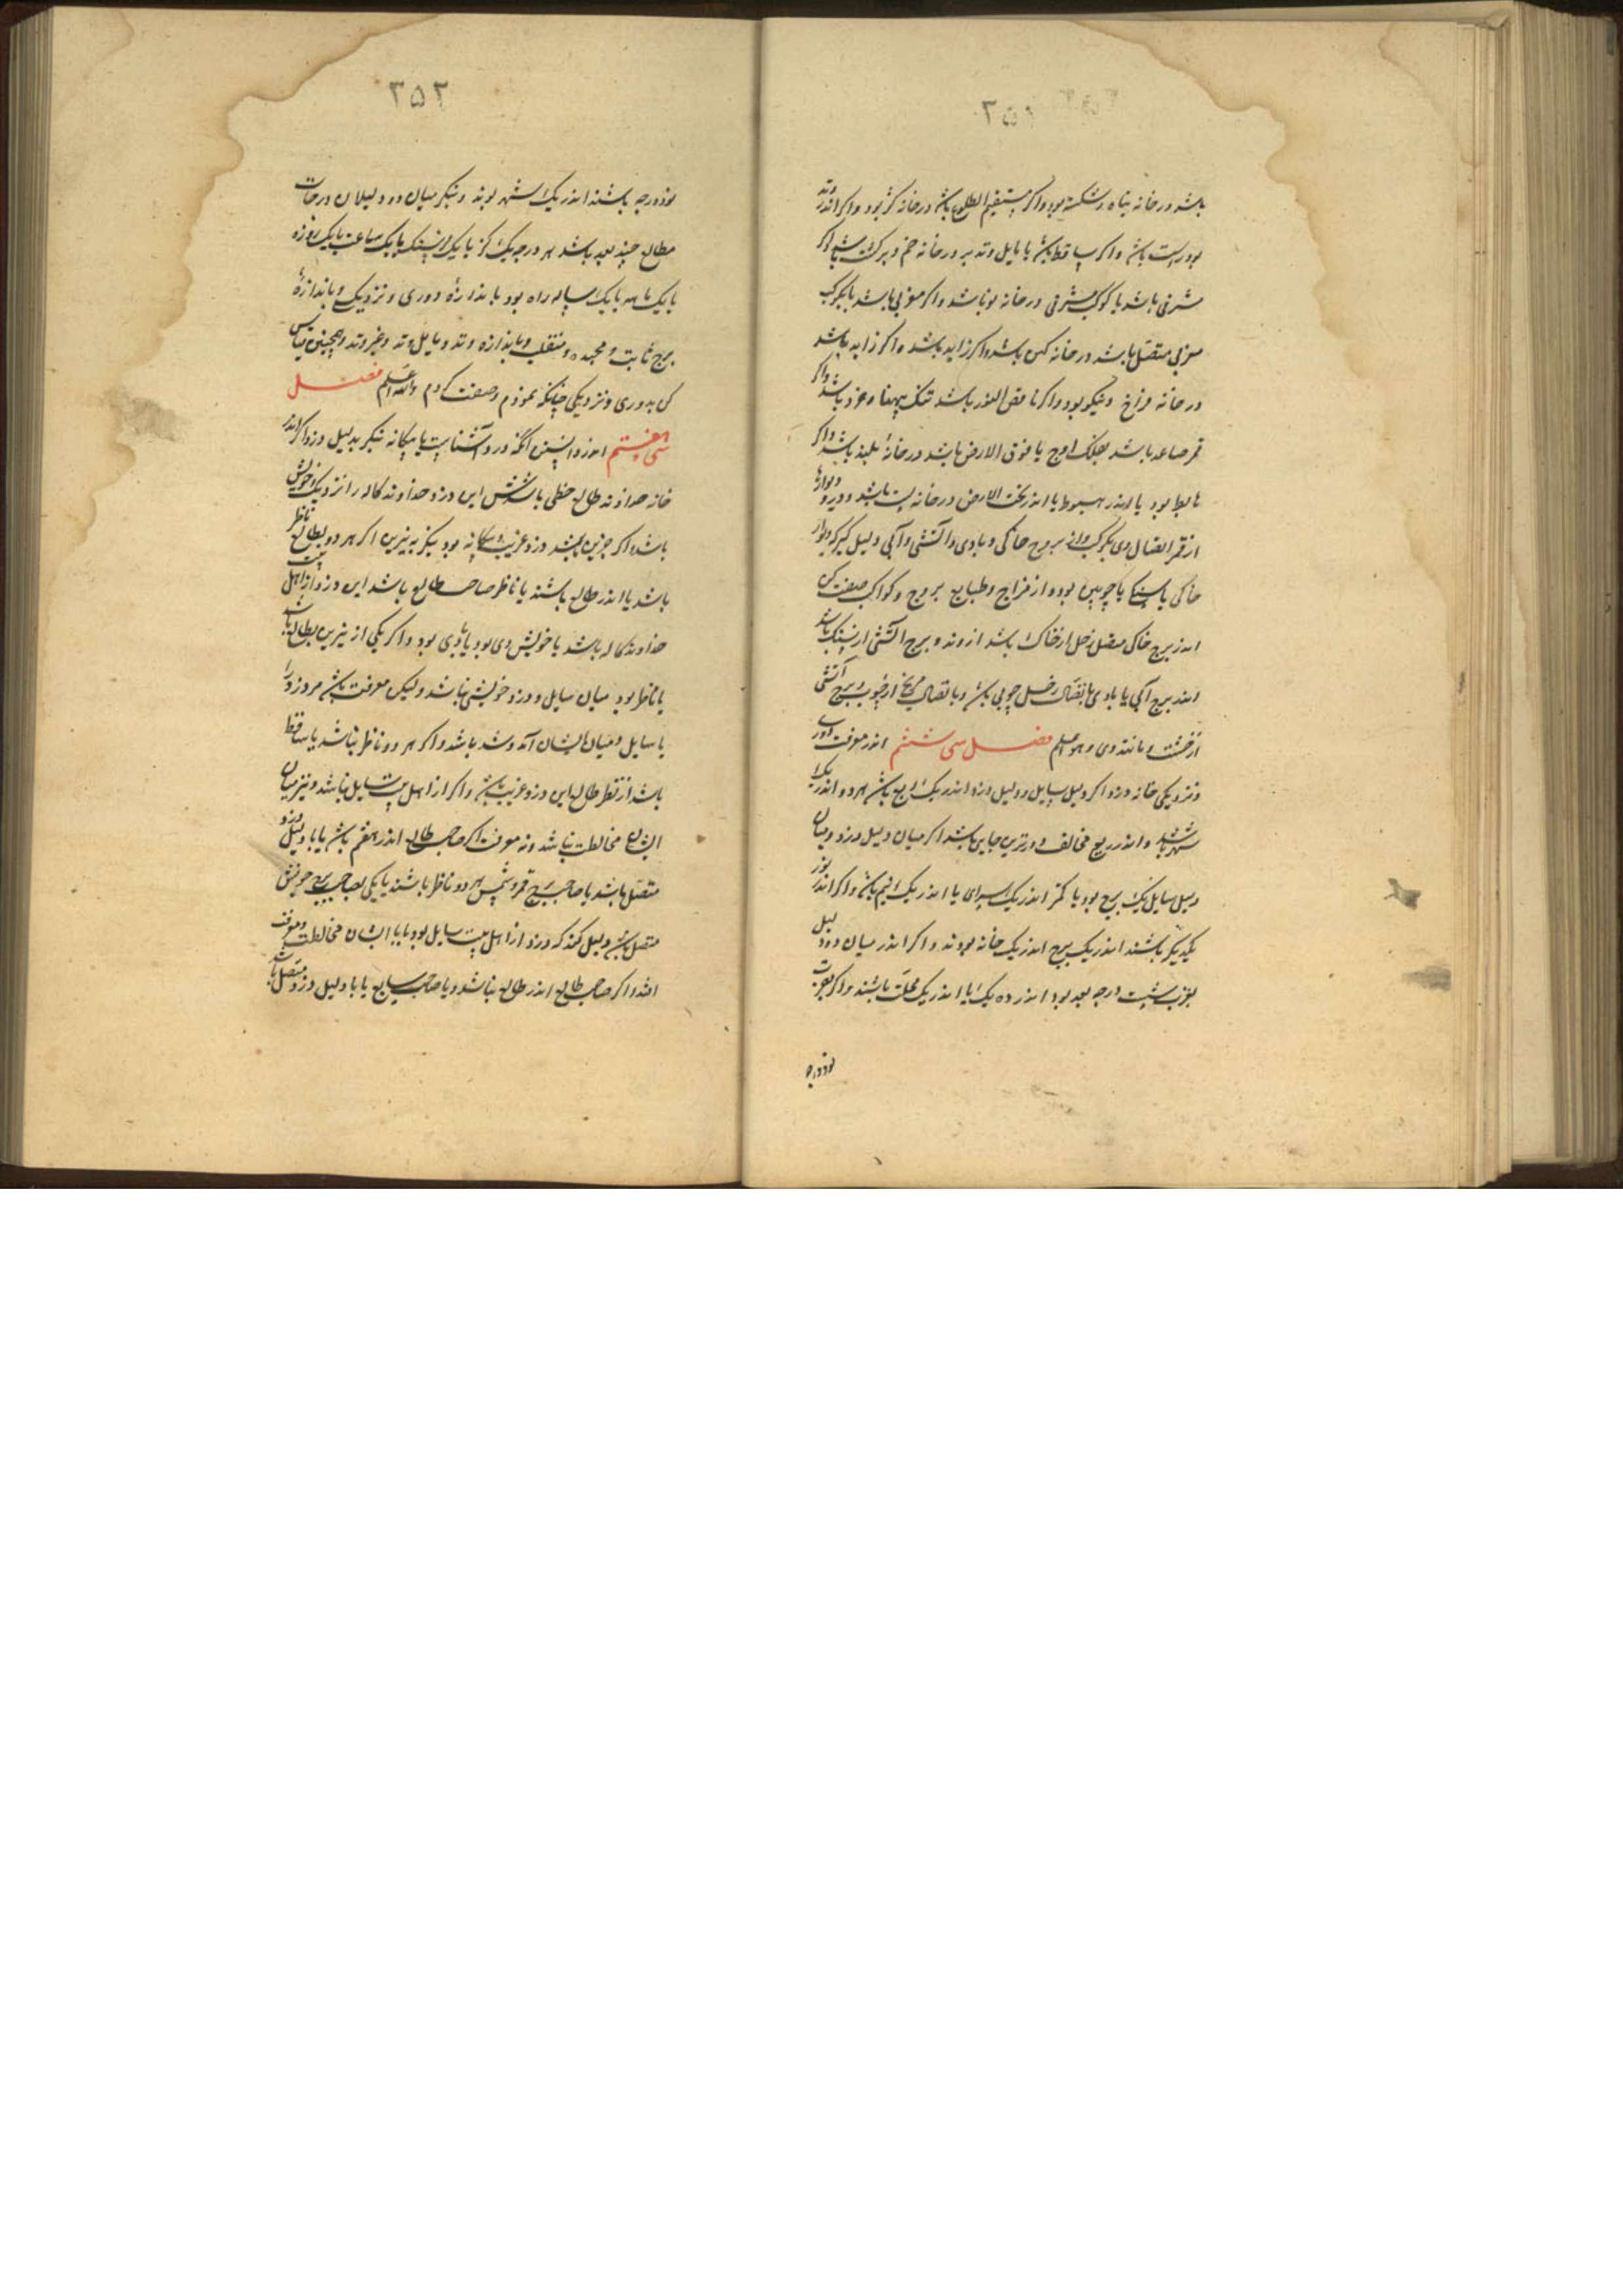 ۳۵۱
باشد در خانه پناه و شکسته بود و اگر مستقیم الطلوع باشد در خانه کژ بود و اگر اندر وتد
بود راست باشد و اگر ساقط باشد یا مایل وتد بر در خانه خم و برکت باشد و اگر
شرقی باشد یا کوکب شرقی در خانه نو باشد و اگر مغربی باشد یا بکوکب
مغربی متصل باشد در خانه کهن باشد و اگر زاید باشد و اگر زاید باشد
در خانه فراخ و نیکو بود و اگر ناقص النور باشد تنک پهنا و خرد باشد و اگر
قمر صاعد باشد بفلک اوج یا فوق الارض باشد در خانهٔ بلند باشد و اگر
هابط بود یا اندر هبوط یا اندر تحت الارض در خانه پست باشد و دیوارها
از قمر اتصال وی بکوکب و از بروج خاکی و بادی و آتشی و آبی دلیل گیر که دیوار
خاکی یا سنگی یا چوبین بود و از مزاج و طبایع بروج و کواکب صفت کن
اندر برج خاکی متصل زحل از خاک باشد از وند و برج آتشی از سنک باشد
اندر برج آبی یا بادی باتصال زحل چوبی باشد و باتصال مریخ از چوب و برج آتشی
از خشت و مانند وی و هو اعلم فصل سی ششم اندر معرفت دوری
و نزدیکی خانه دزد اگر دلیل سایل و دلیل دزد اندر یک ربع باشد هر دو اندر یک
شهر باشند و اندر ربع مخالف دورترین جایی باشد اگر میان دلیل دزد و میان
دلیل سایل یک برج بود یا کمتر اندر یک سرای یا اندر یک اقلیم باشد و اگر اندر نور
یکدیگر باشند اندر یک برج اندر یک خانه بودند و اگر اندر میان دو دلیل
بقرب شست درجه بعد بود اندر ده یک یا اندر یک محلت باشند و اگر بقرب
نود درجه
۳۵۲
نود درجه باشند اندر یک شهر بوند و بنگر میان دو دلیلان درجات
مطالع چند بعد باشد هر درجه یک کز یا یک فرسنک یا یک ساعت یا یک روزه
یا یک ماهه یا یک ساله راه بود باندازهٔ دوری و نزدیک و باندازهٔ
برج ثابت و مجسده و منقلب و باندازه وتد و مایل وتد و غیر وتد و همچنین قیاس
کن بدوری و نزدیکی چنانکه نمودم و صفت کردم والله اعلم فصل
سی هفتم اندر دانستن انکه دزد آشناست یا بیکانه بنگر بدلیل دزد اگر اندر
خانه خداوند طالع حظی باشدش این دزد خداوند کاله را نزدیک و خویش
باشد و اگر جز این باشد دزد غریب و بیکانه بود بنگر به نیرین اگر هر دو بطالع ناظر
باشد یا اندر طالع باشند یا ناظر صاحب طالع باشد این دزد از اهل بیت
خداوند کاله باشد یا خویش وی بود یا با وی بود و اگر یکی از نیرین بطالع باشد
یا ناظر بود میان سایل و دزد خویشی نباشد ولیکن معرفت باشد مر دزد را
با سایل و میان ایشان آمد و شد باشد و اگر هر دو ناظر نباشد یا ساقط
باشد از نظر طالع این دزد غریب باشد و اگر از اهل بیت سایل نباشد و نیز میان
ایشان مخالطت نباشد و نه معرفت اگر صاحب طالع اندر هفتم باشد یا با دلیل دزد
متصل باشد یا صاحب برج قمر و شمس هر دو ناظر باشند یا یکی بصاحب برج خویش
متصل باشد دلیل کند که دزد از اهل بیت سایل بود یا با ایشان مخالطت و معرفت
افتد و اگر صاحب طالع اندر طالع نباشد و یا صاحب سابع یا با دلیل دزد متصل باشد